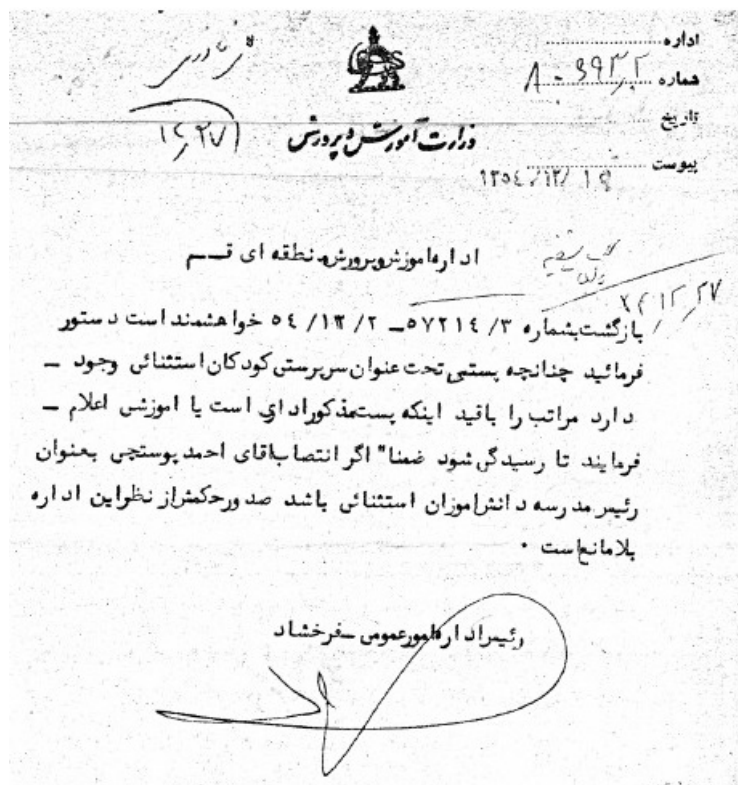 اداره
شماره ۳۹۲۰۲ - ۸
تاریخ
پیوست
۱۳۵٤/۱۲/۱۹
وزارت آموزش و پرورش
۱۲/۲۷
اداره اموزش وپرورش منطقه ای قـــم
۱۲/۲۷
بازگشت بشماره ۳/ ۵۷۲۱٤ــ ۲ /۱۲/ ٥٤ خواهشمند است دستور
فرمائید چنانچه پستی تحت عنوان سرپرستی کودکان استثنائی وجود ــ
دارد مراتب را باقید اینکه پست مذکور اداری است یا اموزشی اعلام ــ
فرمایند تا رسیدگی شود ضمنا" اگر انتصاب اقای احمد پوستچی بعنوان
رئیس مدرسه دانش اموزان استثنائی باشد صدور حکمش از نظر این اداره
بلامانع است ۰
رئیس اداره امور عمومی ــ فرخشاد